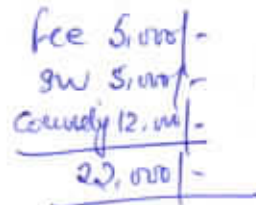 fee 5,000/-
gw 5,000/-
County 12,000/-
22,000/-